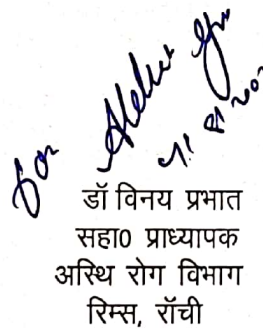 for
डॉ विनय प्रभात
सहा0 प्राध्यापक
अस्थि रोग विभाग
रिम्स, रॉची